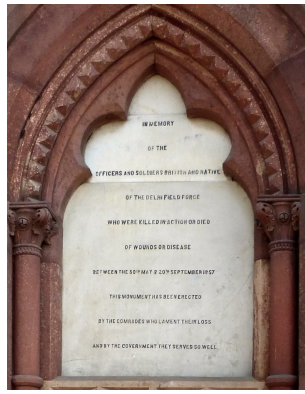 IN MEMORY
OF THE
OFFICERS AND SOLDIERS BRITISH AND NATIVE
OF THE DELHI FIELD FORCE
WHO WERE KILLED IN ACTION OR DIED
OF WOUNDS OR DISEASE
BETWEEN THE 30TH MAY & 20TH SEPTEMBER 1857
THIS MONUMENT HAS BEEN ERECTED
BY THE COMRADES WHO LAMENT THEIR LOSS
AND BY THE GOVERNMENT THEY SERVED SO WELL